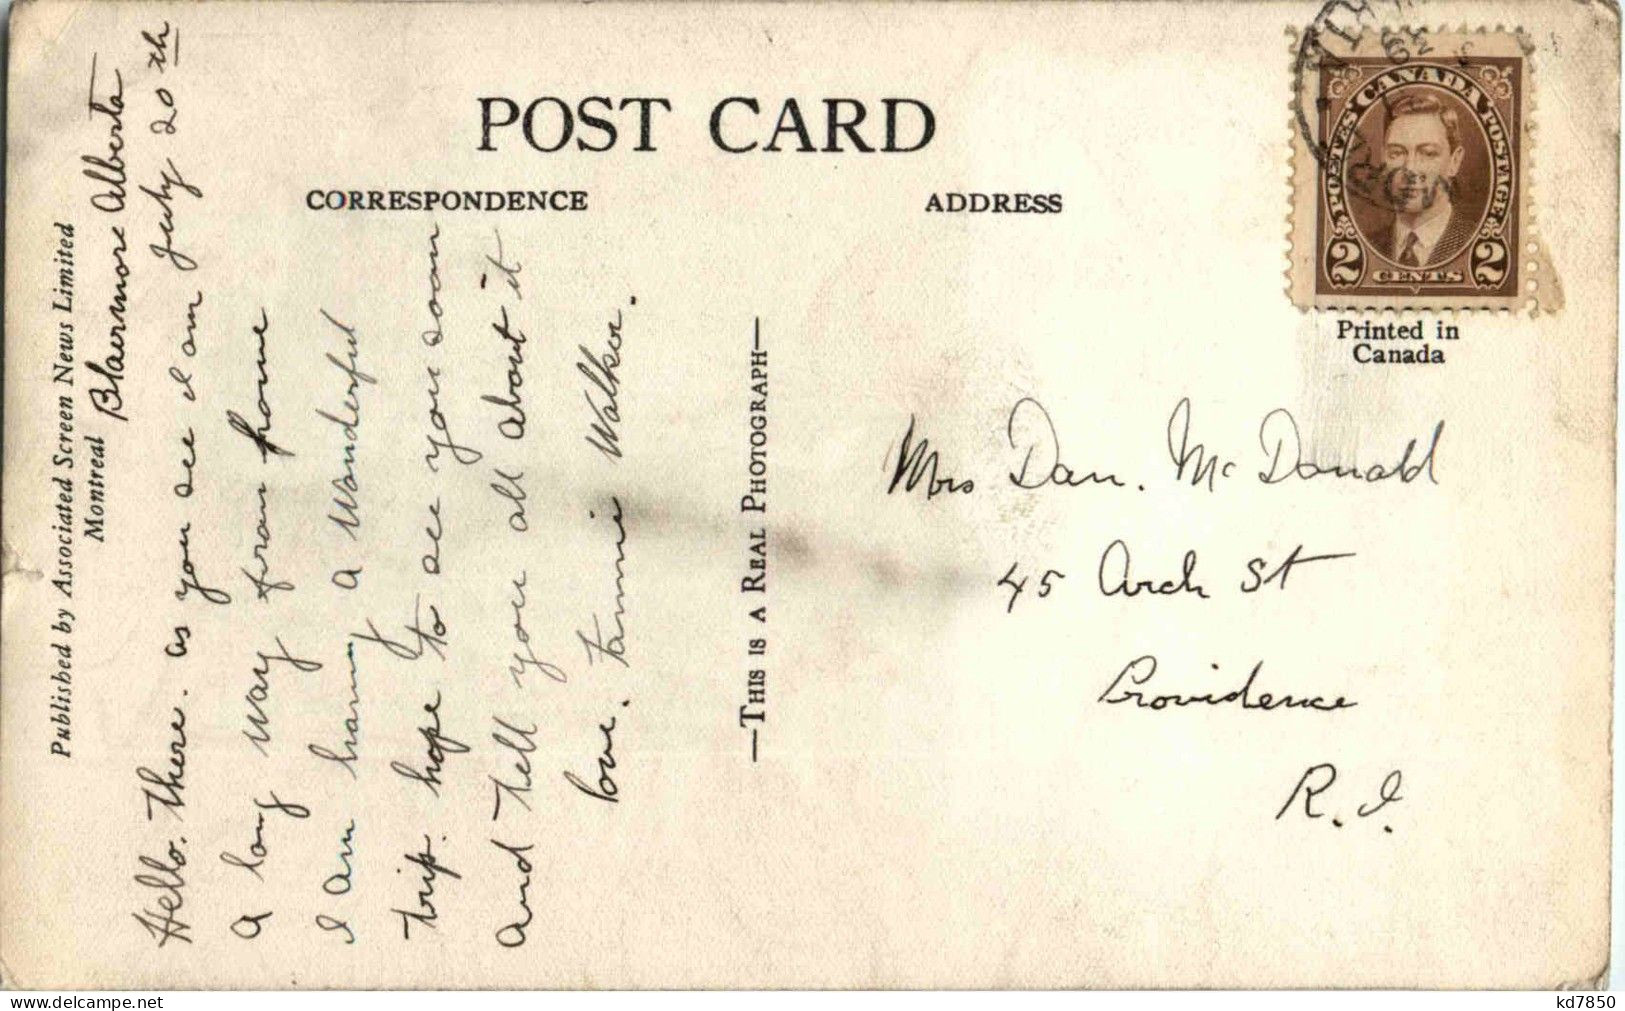 POST CARD
CORRESPONDENCE
ADDRESS
Published by Associated Screen News Limited
Montreal
Blairmore Alberta
July 20th
Hello. There. as you see I am
a long way from home
I am having a Wonderful
trip. hope to see you soon
and tell you all about it
love. Tannie Walker.
—THIS IS A REAL PHOTOGRAPH—
POSTES CANADA POSTAGE
2 CENTS 2
Printed in
Canada
Mrs Dan. McDonald
45 Arch St
Providence
R.I.
kd7850